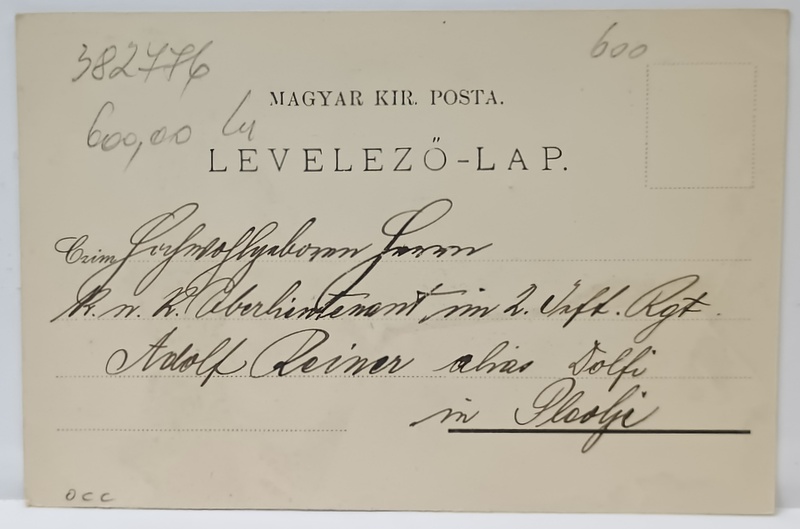 382776
600
600,00 Lei
MAGYAR KIR. POSTA.
LEVELEZŐ-LAP.
Czim Hochwohlgeboren Herrn
K. u. K. Oberlieutenant, im 2. Inft. Rgt.
Adolf Reiner alias Dolfi
in
occ